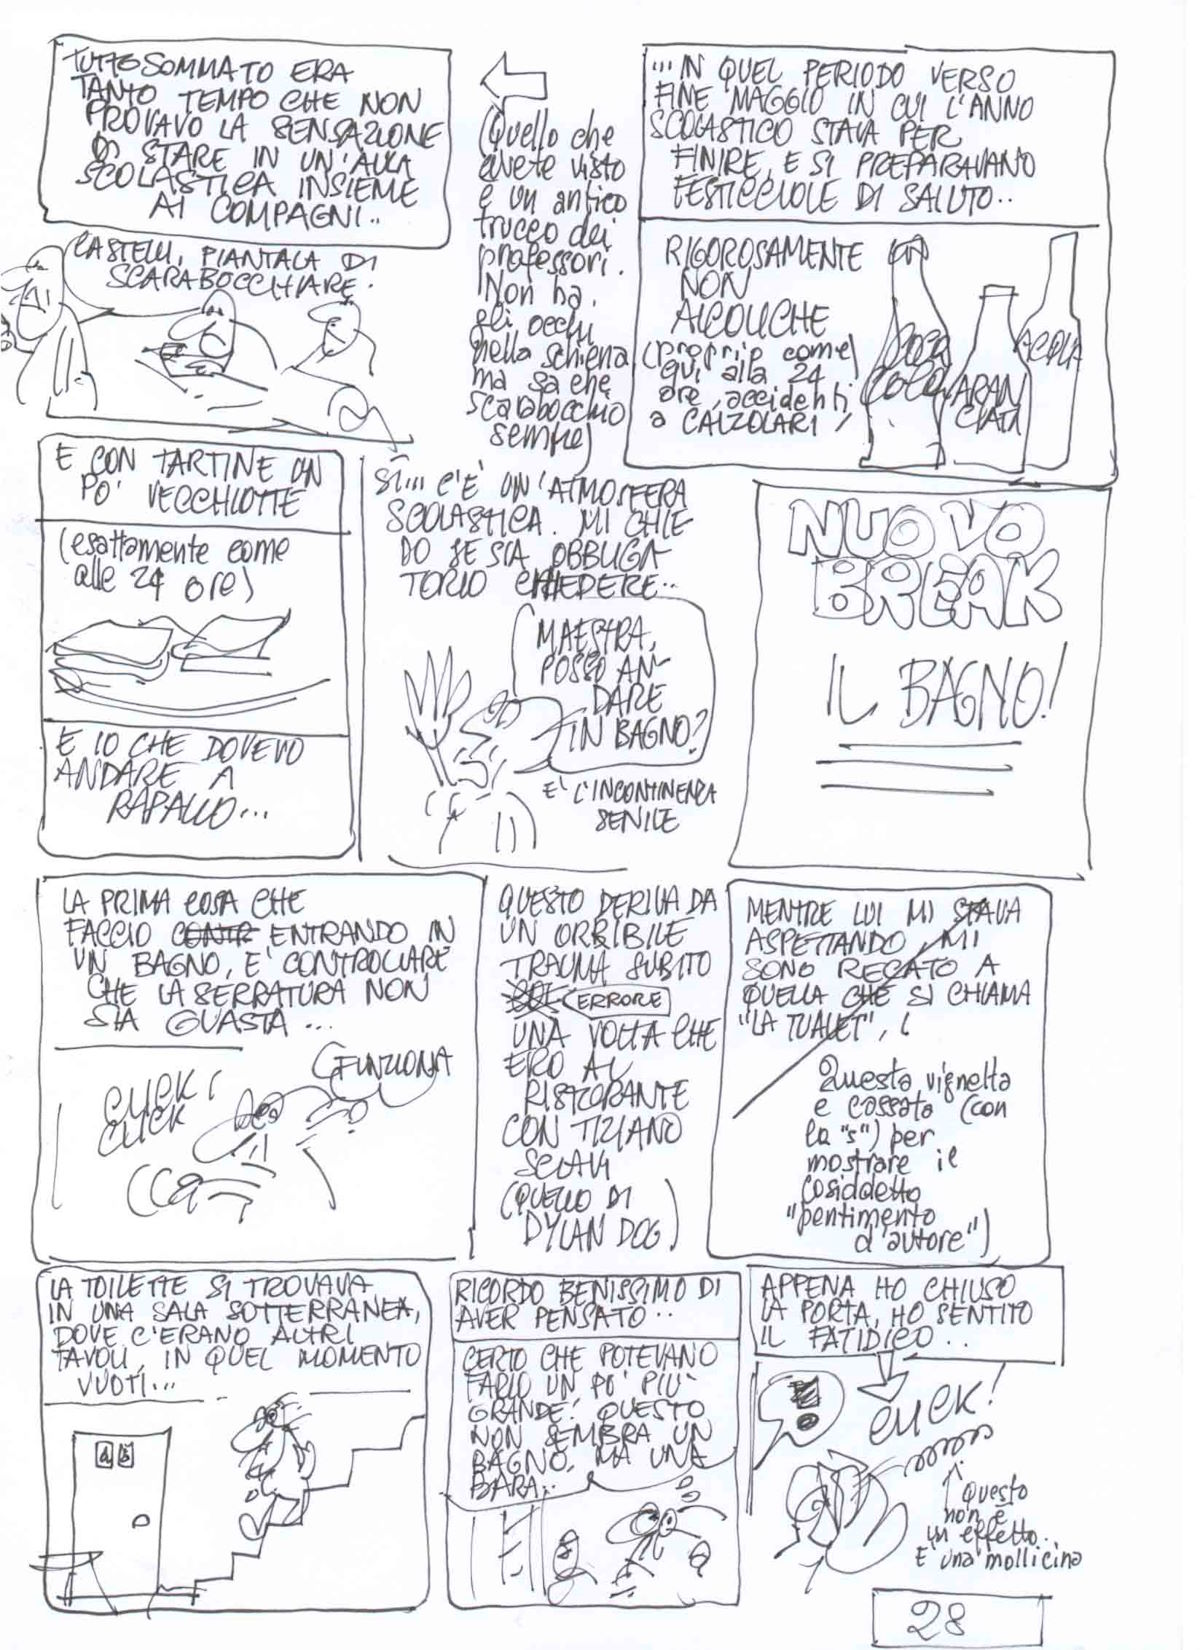 TUTTO SOMMATO ERA
TANTO TEMPO CHE NON
PROVAVO LA SENSAZIONE
DI STARE IN UN'AULA
SCOLASTICA INSIEME
AI COMPAGNI..
CASTELLI, PIANTALA DI
SCARABOCCHIARE.
(Quello che
avete visto
è un antico
trucco dei
professori.
Non ha
gli occhi
nella schiena
ma sa che
scarabocchio
sempre)
...IN QUEL PERIODO VERSO
FINE MAGGIO IN CUI L'ANNO
SCOLASTICO STAVA PER
FINIRE, E SI PREPARAVANO
FESTICCIOLE DI SALUTO..
RIGOROSAMENTE
NON
ALCOLICHE
(proprio come
qui alla 24
ore, accidenti
a CALZOLARI)
Coca
Cola
ARAN
CIATA
ACQUA
E CON TARTINE UN
PO' VECCHIOTTE
(esattamente come
alle 24 ore)
E IO CHE DOVEVO
ANDARE A
RAPALLO...
SÌ... C'È UN'ATMOSFERA
SCOLASTICA. MI CHIE
DO SE SIA OBBLIGA
TORIO CHIEDERE..
MAESTRA,
POSSO AN-
DARE
IN BAGNO?
E' L'INCONTINENZA
SENILE
NUOVO
BREAK
IL BAGNO!
LA PRIMA COSA CHE
FACCIO CONTR ENTRANDO IN
UN BAGNO, E' CONTROLLARE
CHE LA SERRATURA NON
SIA GUASTA...
CLICK!
CLICK
FUNZIONA
QUESTO DERIVA DA
UN ORRIBILE
TRAUMA SUBITO
ERRORE
UNA VOLTA CHE
ERO AL
RISTORANTE
CON TIZIANO
SCLAVI
(QUELLO DI
DYLAN DOG)
MENTRE LUI MI STAVA
ASPETTANDO MI
SONO RECATO A
QUELLA CHE SI CHIAMA
"LA TUALET", (
Questa vignetta
è cassata (con
la "s") per
mostrare il
cosiddetto
"pentimento
d'autore")
LA TOILETTE SI TROVAVA
IN UNA SALA SOTTERRANEA,
DOVE C'ERANO ALTRI
TAVOLI, IN QUEL MOMENTO
VUOTI...
RICORDO BENISSIMO DI
AVER PENSATO..
CERTO CHE POTEVANO
FARLO UN PO' PIU'
GRANDE! QUESTO
NON SEMBRA UN
BAGNO, MA UNA
BARA..
APPENA HO CHIUSO
LA PORTA, HO SENTITO
IL FATIDICO..
!
CLICK!
Questo
non è
un effetto..
E' una mollicina
28